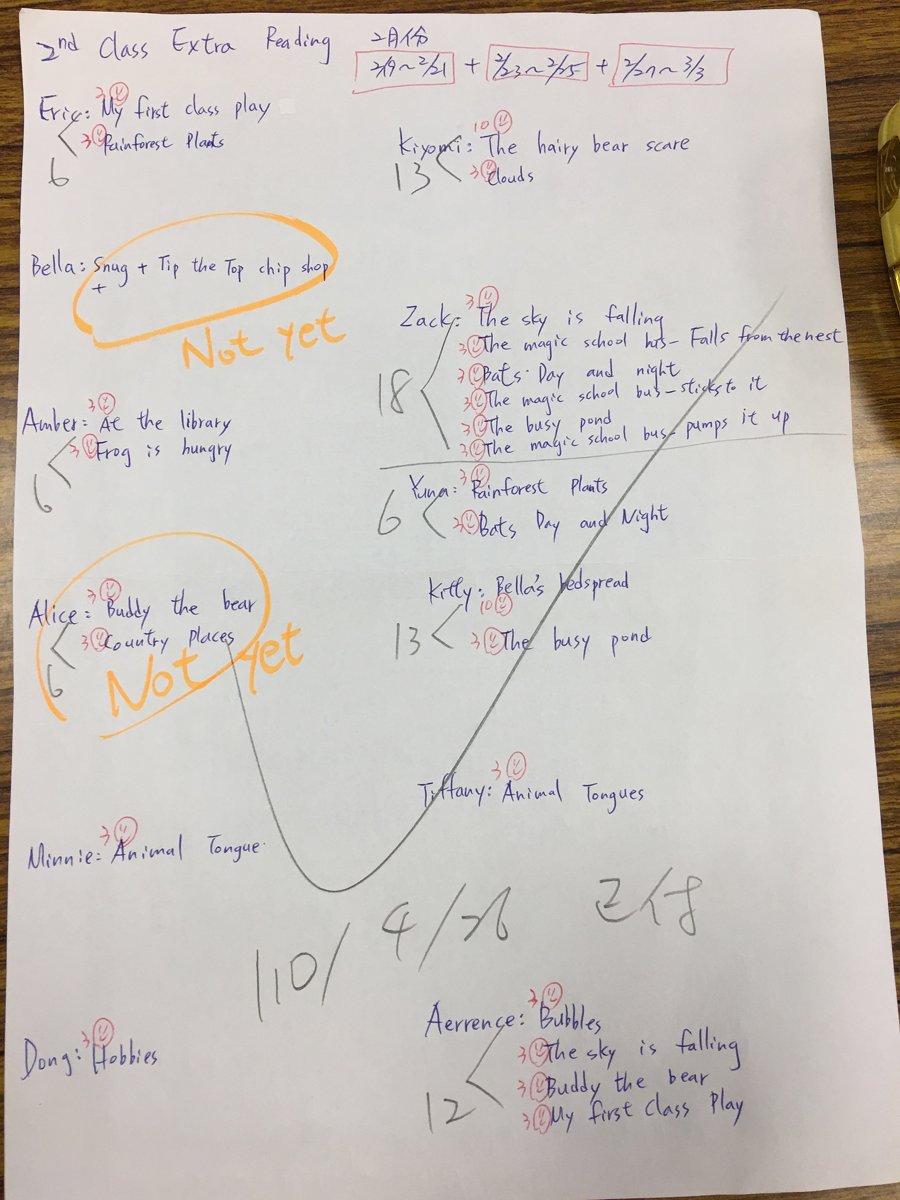 2nd Class Extra Reading 2月份
2/19~2/21 + 2/23~2/25 + 2/27~3/3
Eric: 3 My first class play
3 Rainforest Plants
6
Kiyomi: 10 The hairy bear scare
3 Clouds
13
Bella: Snug + Tip the Top chip shop
+
Not yet
Zack: 3 The sky is falling
3 The magic school bus - Falls from the nest
3 Bats Day and night
3 The magic school bus - sticks to it
3 The busy pond
3 The magic school bus - pumps it up
18
Amber: 3 At the library
3 Frog is hungry
6
Yuna: 3 Rainforest Plants
3 Bats Day and Night
6
Alice: 3 Buddy the bear
3 Country Places
6
Not yet
Kitty: Bella's bedspread
10
3 The busy pond
13
Tiffany: 3 Animal Tongues
Minnie: 3 Animal Tongue
110/4/26 已付
Dong: 3 Hobbies
Aerrence: 3 Bubbles
3 The sky is falling
3 Buddy the bear
3 My first Class Play
12